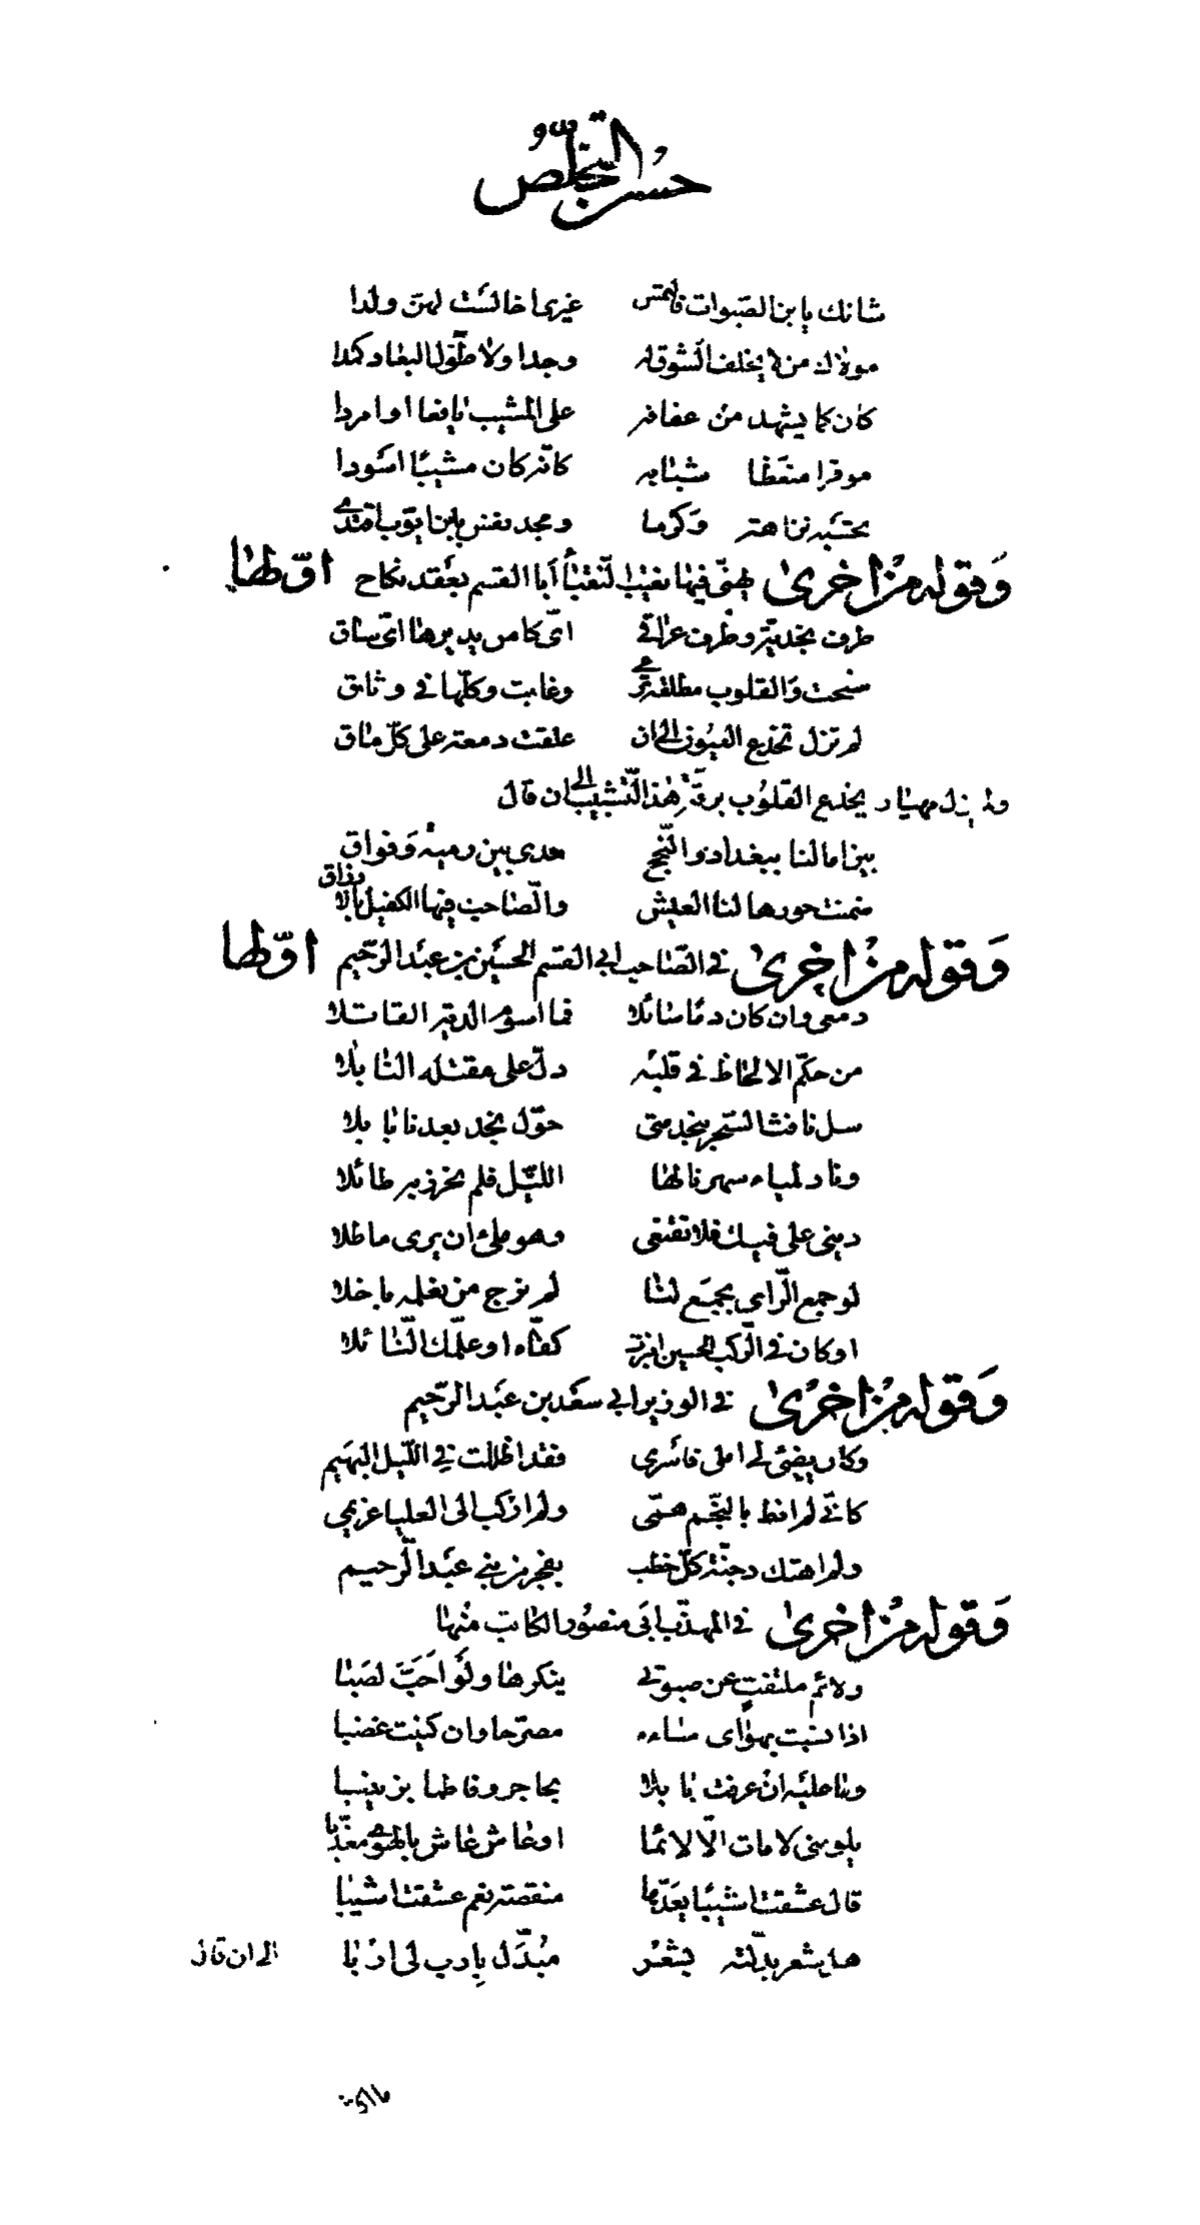 حسن التخلص
شانك يا بن الصبوات فالتمس غيرى اخا لست لهن ولدا
مولاك من لا يخلف الشوق له وجدا ولا طول البعاد كمدا
كان كما يشهد من عفافه على المشيب يافعا او امردا
موقرا متعظا شبابه كانه كان مشيبا اسودا
نزاهة وكرما ومجد نفس بابن ايوب اقتدى
وقوله من اخرى يهنى فيها نقيب النقبا أبا القسم بعقد نكاح اولها
طرف نجدية وظرف عراقى اى كاس يديرها اى ساق
سنحت والقلوب مطلقة ترعى وغابت وكلها فى وثاق
لم تزل تخدع العيون الى ان علقت دمعة على كل ماق
ولم يزل مهيار يخدع القلوب برقة هذا التشبيب الى ان قال
يزا مالنا ببغداد والنجح مدى بين رمية وفواق
ضمنت حورها لنا العيش والصاحب فيها الكفيل بالارزاق
وقوله من اخرى فى الصاحب ابى القسم الحسين بن عبد الرحيم اولها
دمعى وان كان دما سائلا فما اسوم الدية القاتلا
من حكم الالحاظ فى قلبه دل على مقتله النابلا
سل نافث السحر بنجد متى حول نجد بعدنا بابلا
وناد لمياء سهرنا لها الليل فلم نحرز به طائلا
دينى على فيك فلا تقنعى وهو ملىء ان يرى ماطلا
لو جمع الراى بجمع لنا لم نرج من بغله باخلا
او كان فى الركب الحسين انبرت كفاه او علمك النائلا
وقوله من اخرى فى الوزير ابى سعد بن عبد الرحيم
وكان يضئ لى املى فاسرى فقد اظللت فى الليل البهيم
كانى لم انط بالنجم همى ولم اركب الى العليا عزيمى
ولم اهتك دجنة كل خطب بفجر من بنى عبد الرحيم
وقوله من اخرى فى المهذب ابى منصور الكاتب منها
ولائم ملتفت عن صبوتى ينكرها ولو احب لصبا
اذا نسبت بهواى ساءه مصرحا وان كنيت غضبا
وما عليه ان عرفت بابلا بحاجر وفاطما بزينبا
يلومنى لا مات الا لائما او عاش عاش بالهوى معذبا
قال عشقت اشيبا يعدها منقصة نعم عشقت اشيبا
هل شعر بدلته بشعر مبدل يا دب لى اربا الى ان قال